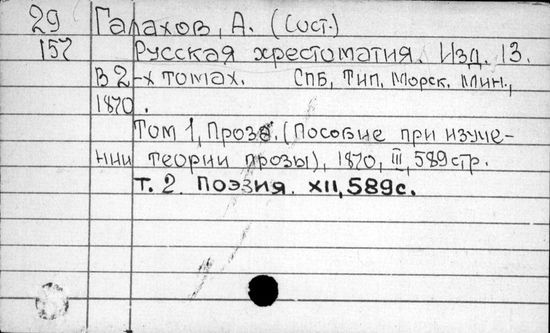 29 Галахов, А. (Сост.)
157 Русская хрестоматия. Изд. 13.
В 2-х томах. СПБ, Тип. Морск. Мин.,
1870.
Том 1, Проза. (Пособие при изуче-
нии теории прозы), 1870, III, 589 стр.
Т. 2. Поэзия. XII, 589 с.